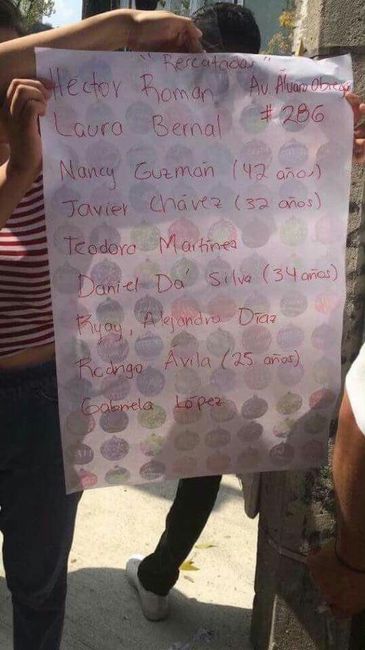 "Rescatados"
Héctor Román Av Álvaro Obregón
Laura Bernal #286
Nancy Guzmán (42 años)
Javier Chávez (32 años)
Teodoro Martínez
Daniel Da' Silva (34 años)
Alejandro Díaz
Rodrigo Ávila (25 años)
Gabriela López